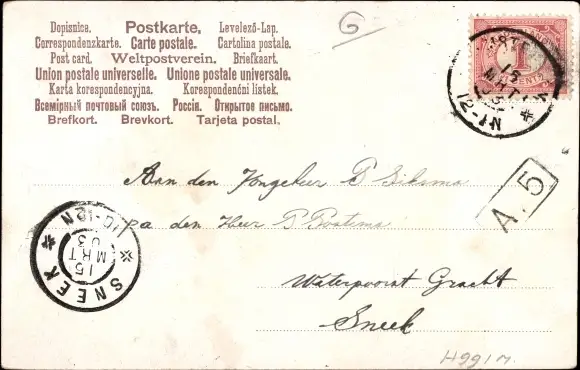 Dopisnice. Postkarte. Levelező-Lap.
Correspondenzkarte. Carte postale. Cartolina postale.
Post card. Weltpostverein. Briefkaart.
Union postale universelle. Unione postale universale.
Karta korespondencyjna. Korespondenční listek.
Всемірный почтовый союзъ. Россія. Открытое письмо.
Brefkort. Brevkort. Tarjeta postal.
G
15
MRT
12-1N
A.5
Aan den Jongeheer P Siksma
pa den Heer P Postma
Waterpoorst Gracht
Sneek
SNEEK
15
MRT
03
10-12N
H991m.